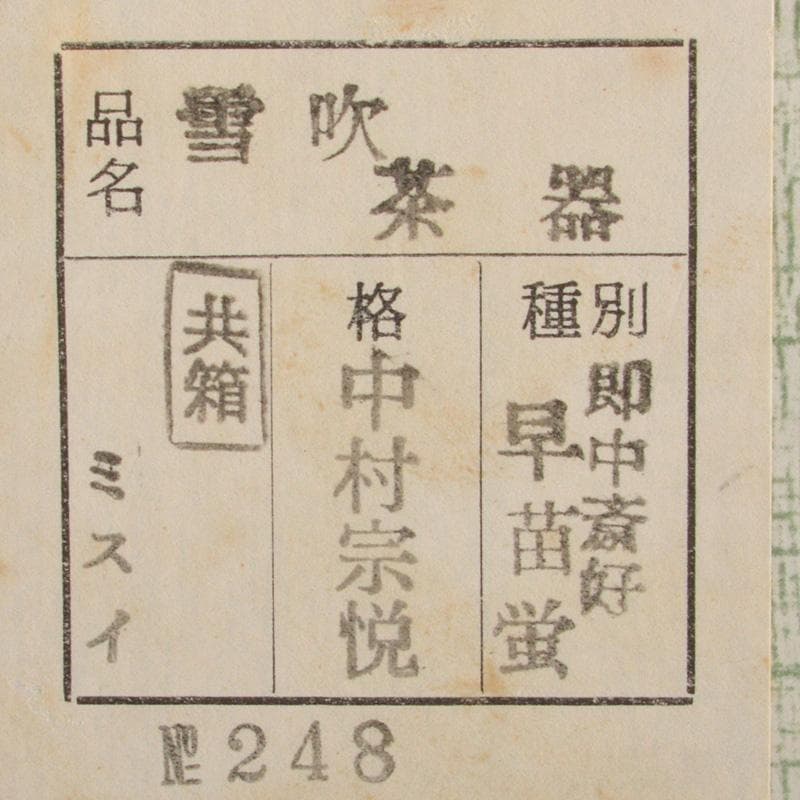 品名 雪吹
茶器
種別
即中斎好
早苗蛍
格
中村宗悦
共箱
ミスイ
№248